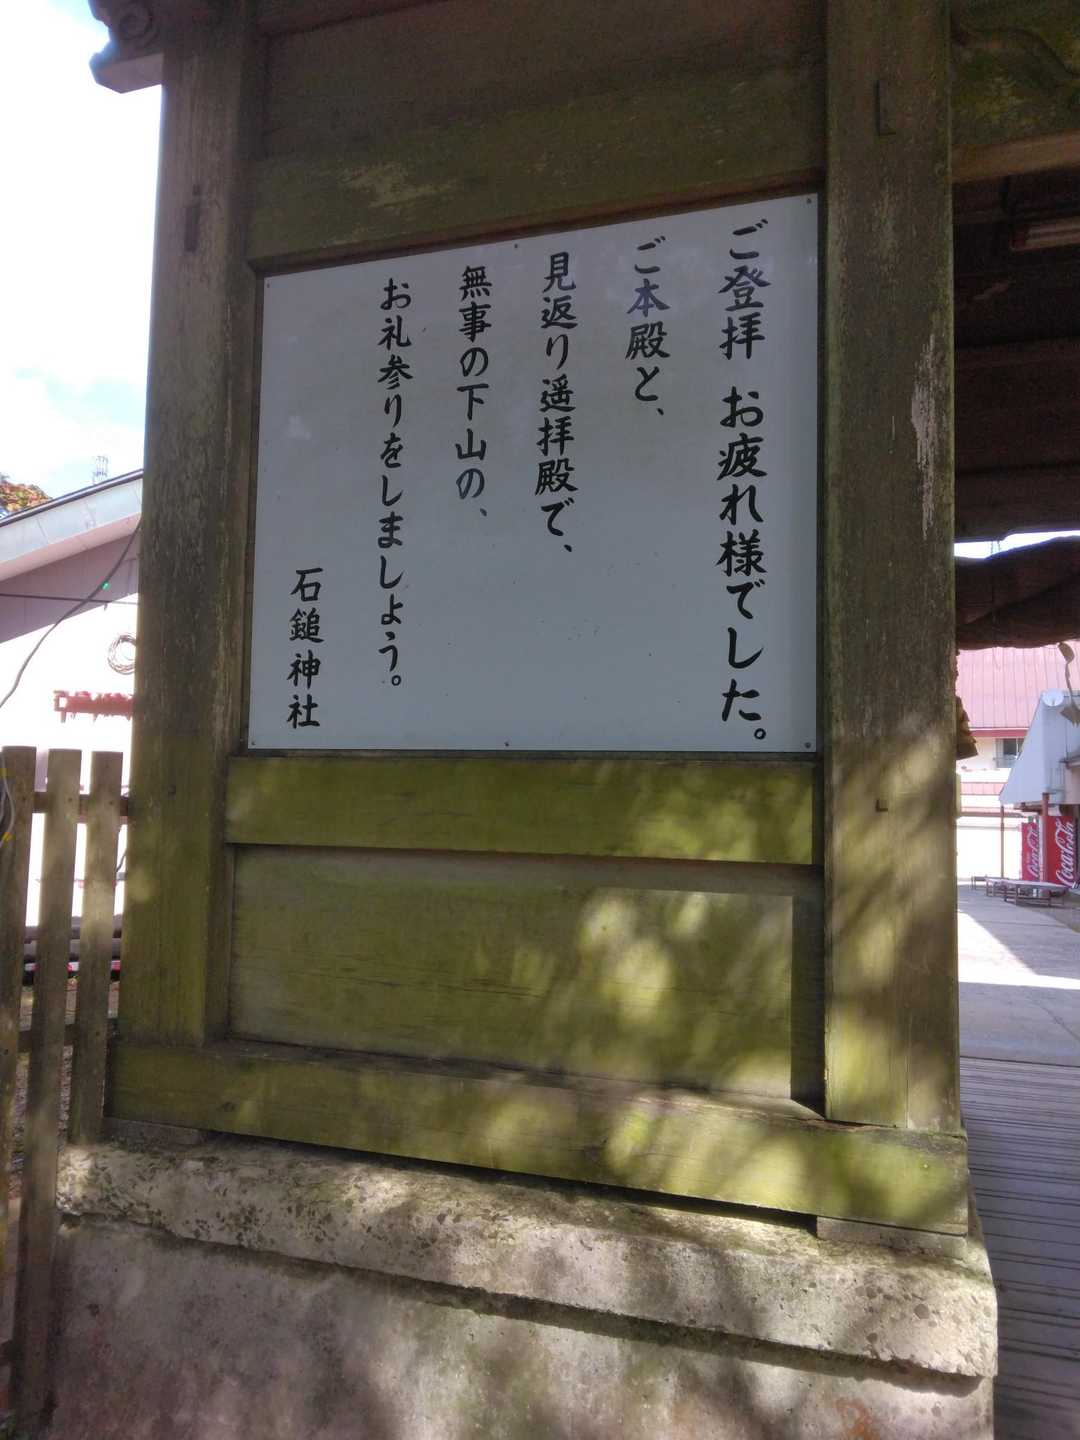 ご登拝 お疲れ様でした。
ご本殿と、
見返り遥拝殿で、
無事の下山の、
お礼参りをしましょう。
石鎚神社
Coca-Cola
Coca-Cola